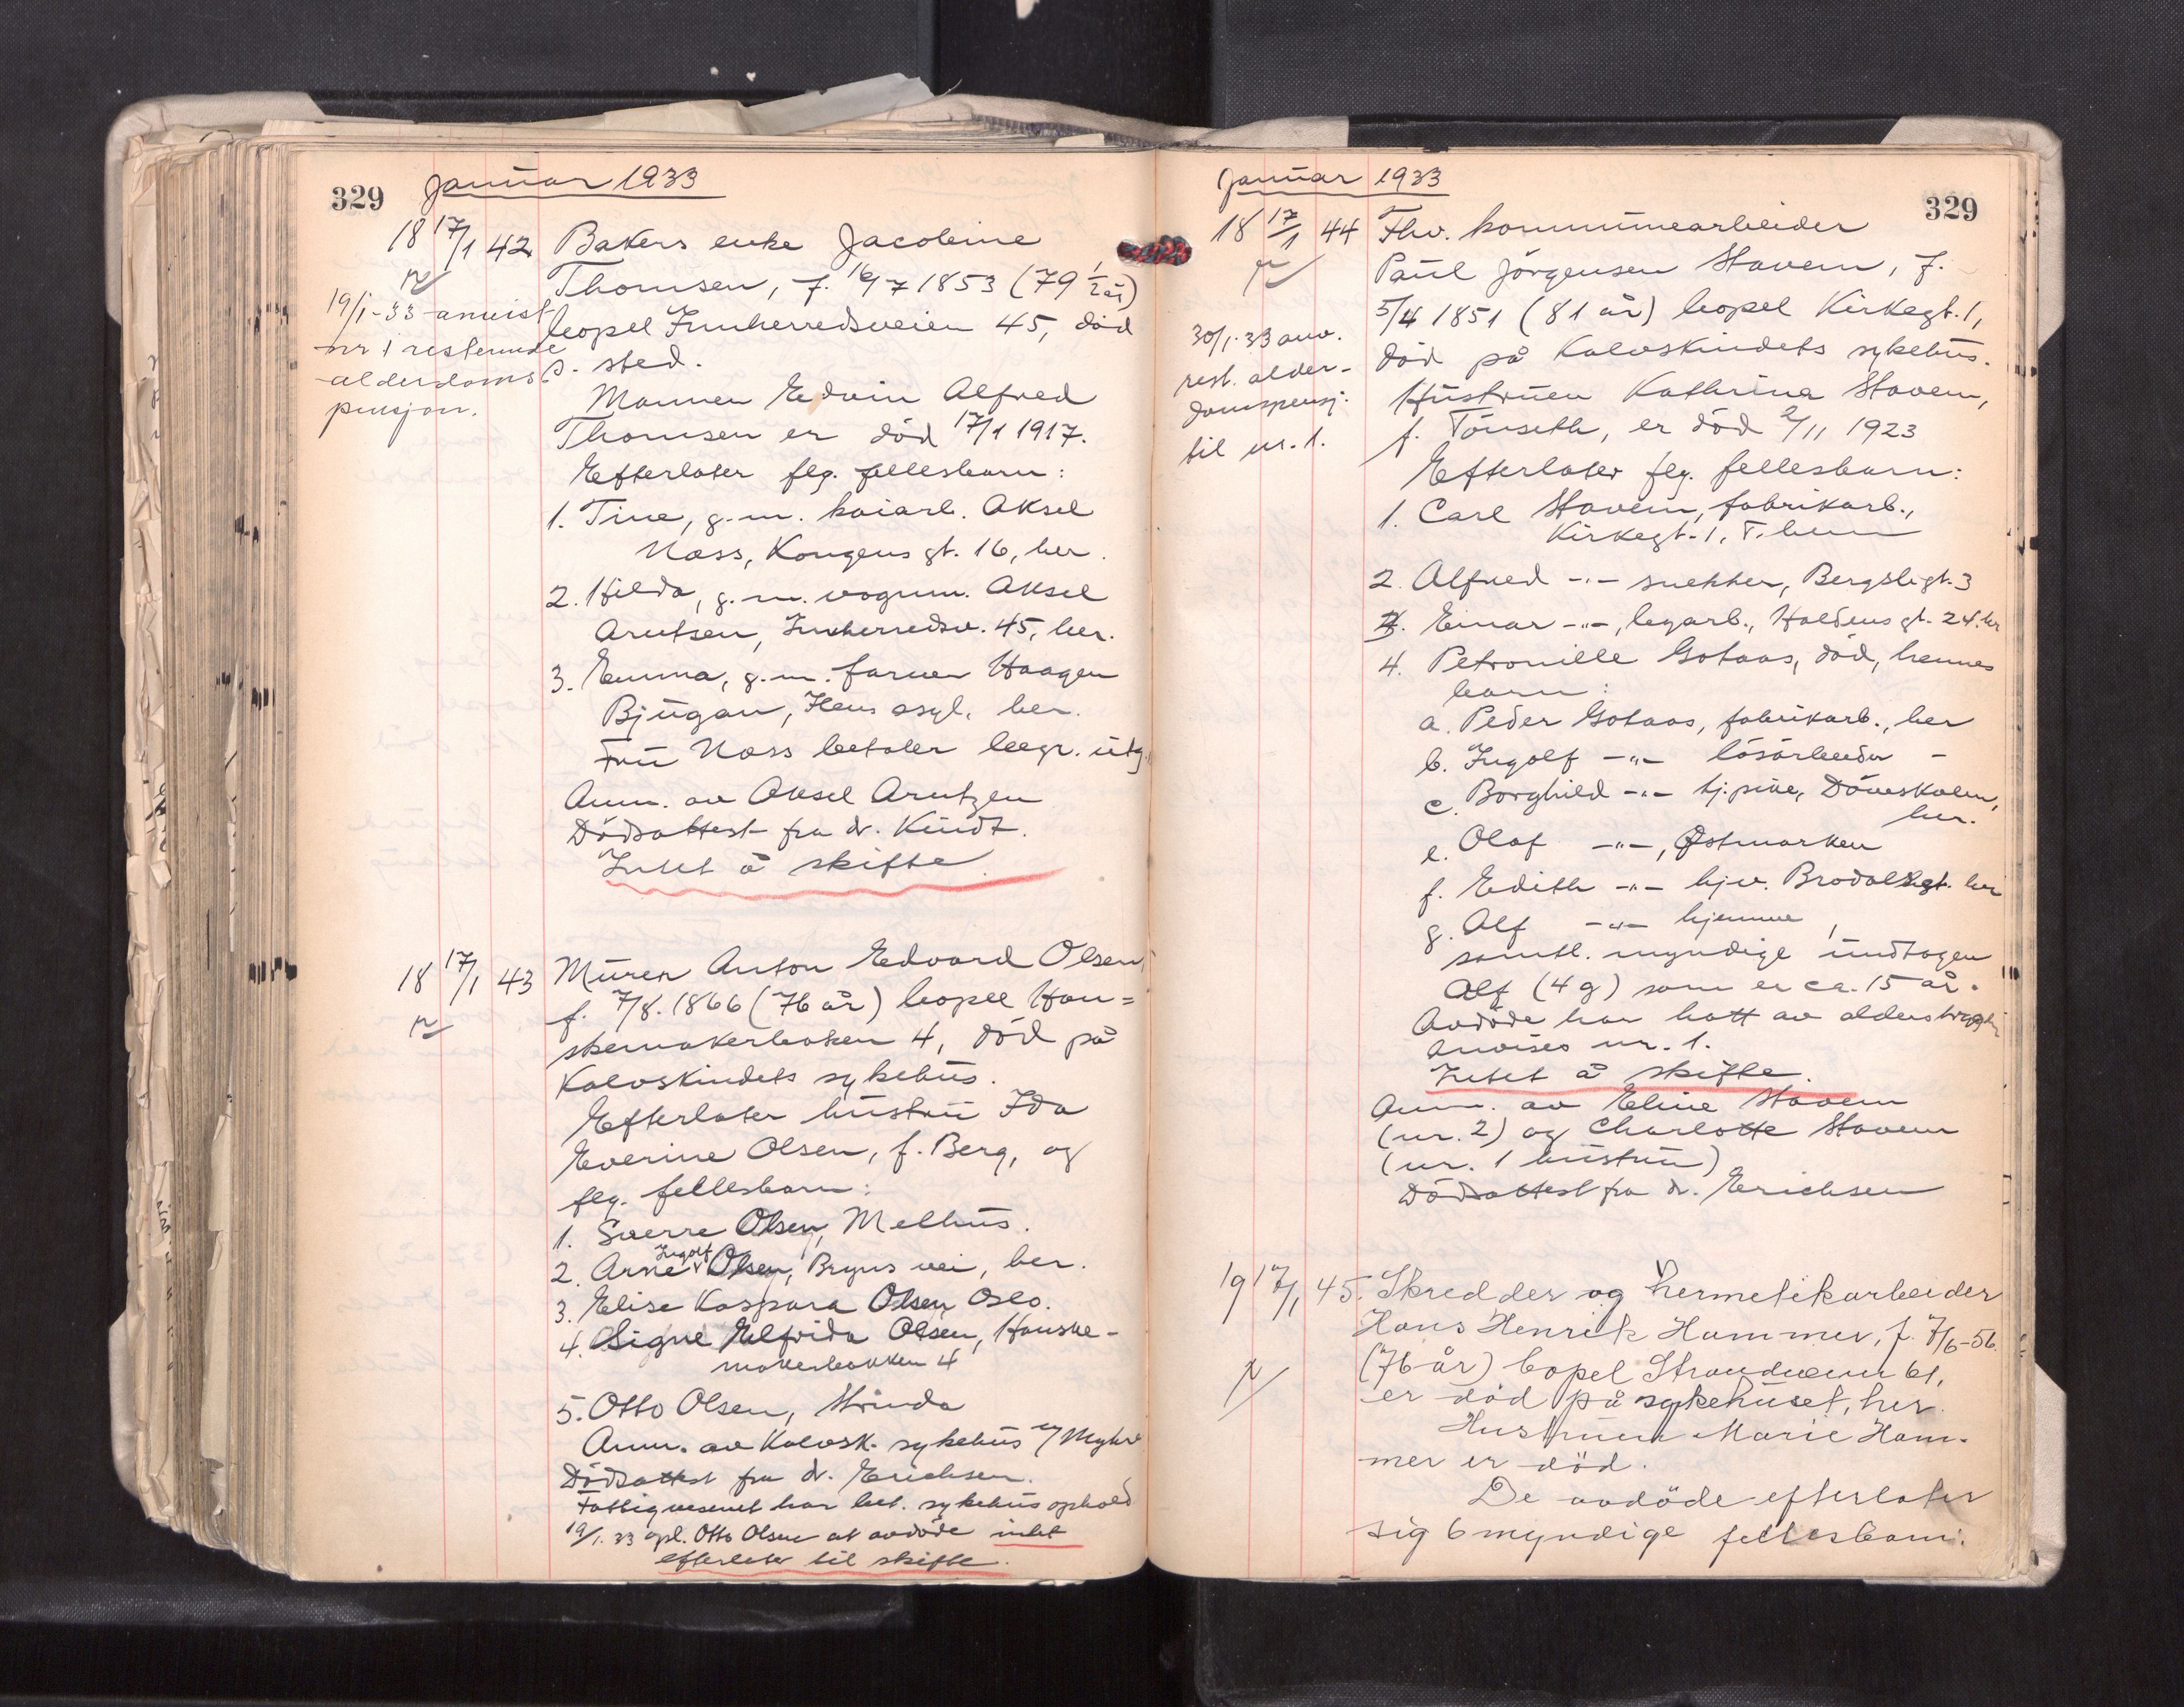 329 Januar 1933
18 17/1 42 Bakers enke Jacobine
Thomsen, f. 16/7 1853 (79 1/2 år)
19/1-33 anvist
nr 1 resterende
alderdoms
pensjon.
bopel Innherredsveien 45, död
s. sted.
Mannen Edvin Alfred
Thomsen er död 17/1 1917.
Efterlater flg. fellesbarn:
1. Tine, g.m. kaiarb. Aksel
Næss, Kongens gt. 16, her.
2. Hilda, g.m. vognm. Aksel
Arntsen, Innherredsv. 45, her.
3. Emma, g.m. farver Haagen
Bjugan, Hens asyl, her.
Fru Næss betaler begr. utg.
Anm. av Aksel Arntzen
Dödsattest fra dr. Kindt.
Intet å skifte.
18 17/1 43 Murer Anton Edvard Olsen,
f. 7/8. 1866 (76 år) bopel Han=
skemakerbakken 4, död på
Kalvskindets sykehus.
Efterlater hustru Ida
Everine Olsen, f. Berg, og
flg. fellesbarn:
1. Sverre Olsen, Melhus.
2. Arne Ingolf Olsen, Bryns vei, her.
3. Elise Kaspara Olsen Oslo.
4. Signe Elfrida Olsen, Hanske-
makerbakken 4
5. Otto Olsen, Strinda
Anm. av Kalvsk. sykehus v/ Myhre
Dödsattest fra dr. Erichsen.
Fattigvesenet har bet. sykehusophold
19/1. 33 opl. Otto Olsen at avdöde intet
efterlater til skifte.
Januar 1933 329
18 17/1 44 Fhv. kommunearbeider
Paul Jörgensen Stavem, f.
5/4 1851 (81 år) bopel Kirkegt. 1,
död på Kalvskindets sykehus.
30/1-33 anv.
rest. alder-
domspensj.
til nr. 1.
Hustruen Kathrina Stavem,
f. Tönseth, er död 2/11 1923
Efterlater flg. fellesbarn:
1. Carl Stavem, fabrikarb.,
Kirkegt. 1, T.hem
2. Alfred -"- snekker, Bergsligt. 3
3. Einar -"-, legarb., Holdens gt. 24. her
4. Petronille Gotaas, död, hennes
barn:
a. Peder Gotaas, fabrikarb., her
b. Ingolf -"- lösarbeider -
c. Borghild -"- tj.pike, Döveskolen,
her.
e. Olaf -"-, Østmarken
f. Edith -"- hjv. Brodals gt. her
g. Alf -"- hjemme,
samtl. myndige undtagen
Alf (4 g) som er ca. 15 år.
Avdöde har hatt av alderstrygden
Anvises nr. 1.
Intet å skifte.
Anm. av Eline Stavem
(nr. 2) og Charlotte Stavem
(nr. 1 hustru)
Dödsattest fra dr. Erichsen
19 17/1 45. Skredder og hermetikarbeider
Hans Henrik Hammer, f. 7/6-56.
(76 år) bopel Strandveien 61,
er död på sykehuset, her.
Hustruen Marie Ham-
mer er död.
De avdöde efterlater
sig 6 myndige fellesbarn: